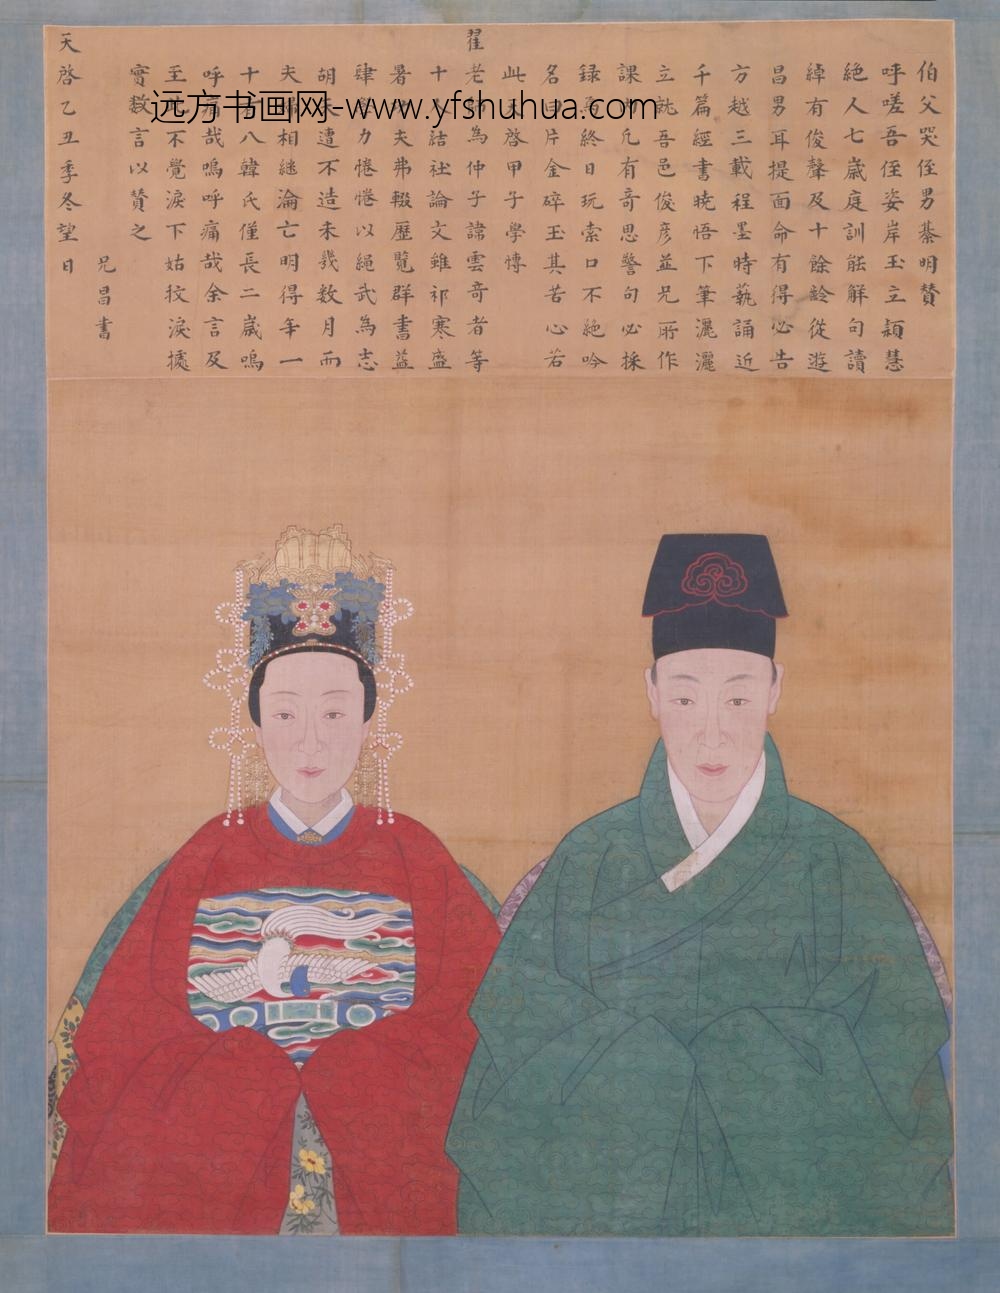 伯父哭侄男綦明贊
呼嗟吾侄姿岸玉立穎慧
絶人七歲庭訓能解句讀
綽有俊聲及十餘齡從遊
昌男耳提面命有得必告
方越三載程墨時藝誦近
千篇經書曉悟下筆灑灑
立就吾邑俊彥並兄所作
課凡有奇思警句必採
録焉終日玩索口不絶吟
名曰片金碎玉其苦心若
此天啓甲子學博
翟老師為仲子諱雲奇者等
十人結社論文雖祁寒盛
暑夫弗輟歷覽群書益
肆力惓惓以繩武為志
胡天遭不造未幾数月而
夫婦相継淪亡明得年一
十有八韓氏僅長二歲嗚
呼痛哉嗚呼痛哉余言及
至此不覺淚下姑抆淚攄
實数言以贊之
兄昌書
天啓乙丑季冬望日
远方书画网-www.yfshuhua.com